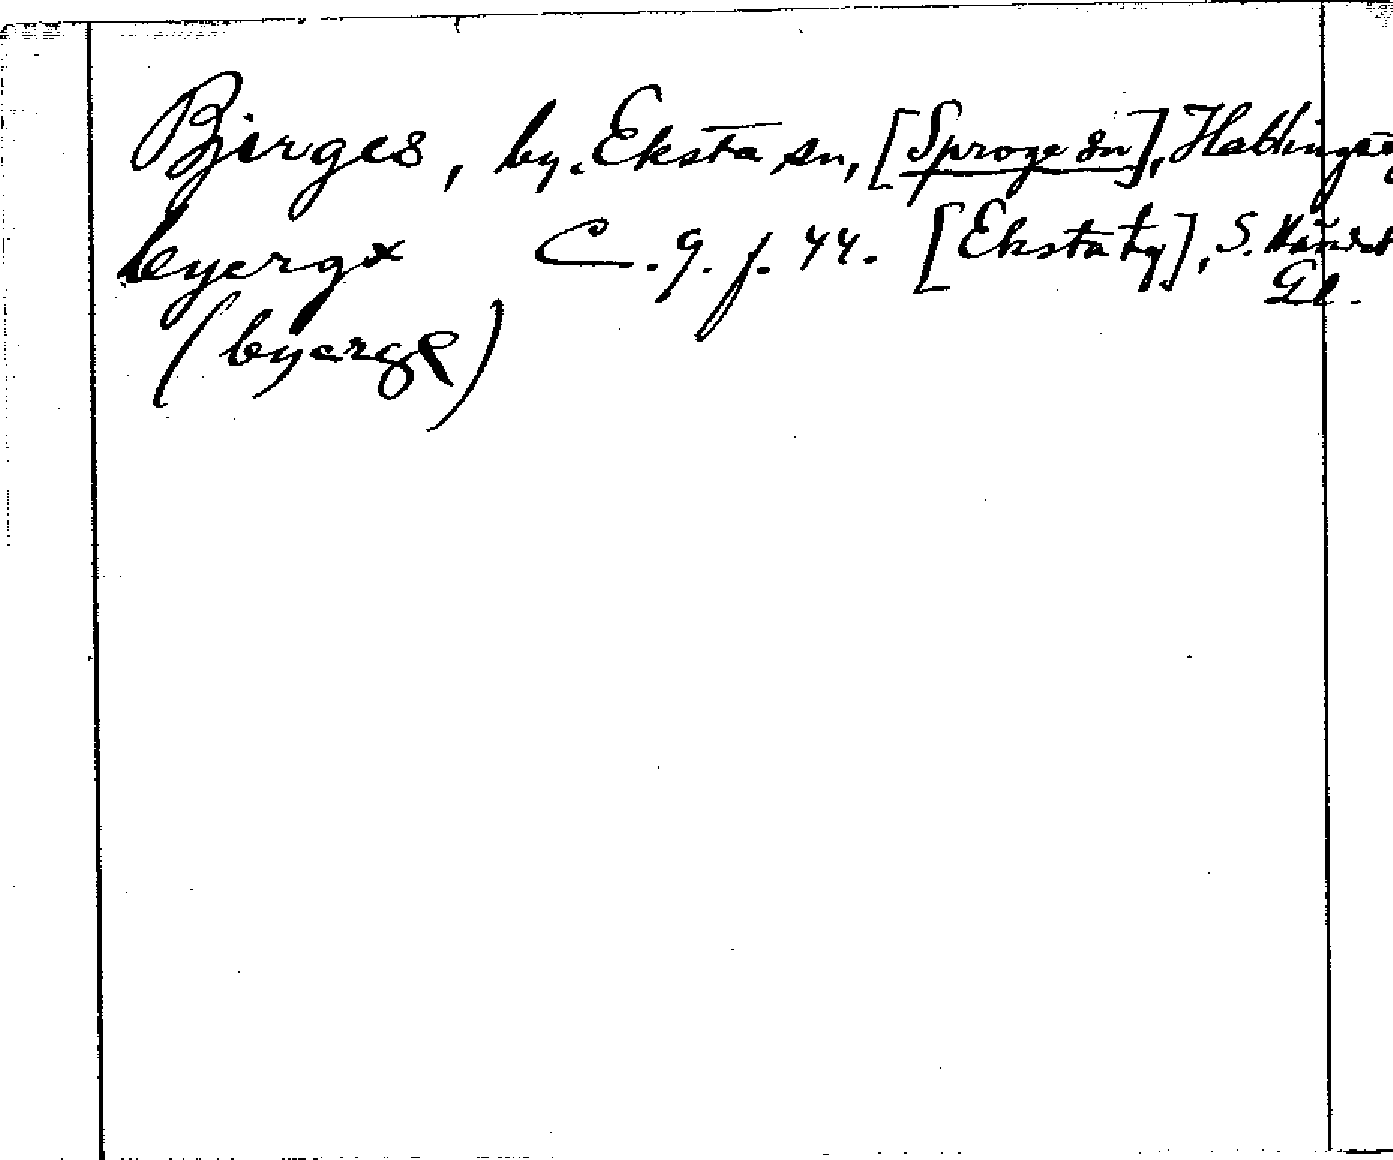 Bjerges, by. Eksta sn, [Sproge sn], Hablingse
byergx C. 9. f. 44. [Eksta ty], S. Härad
Gl.
(byergę)